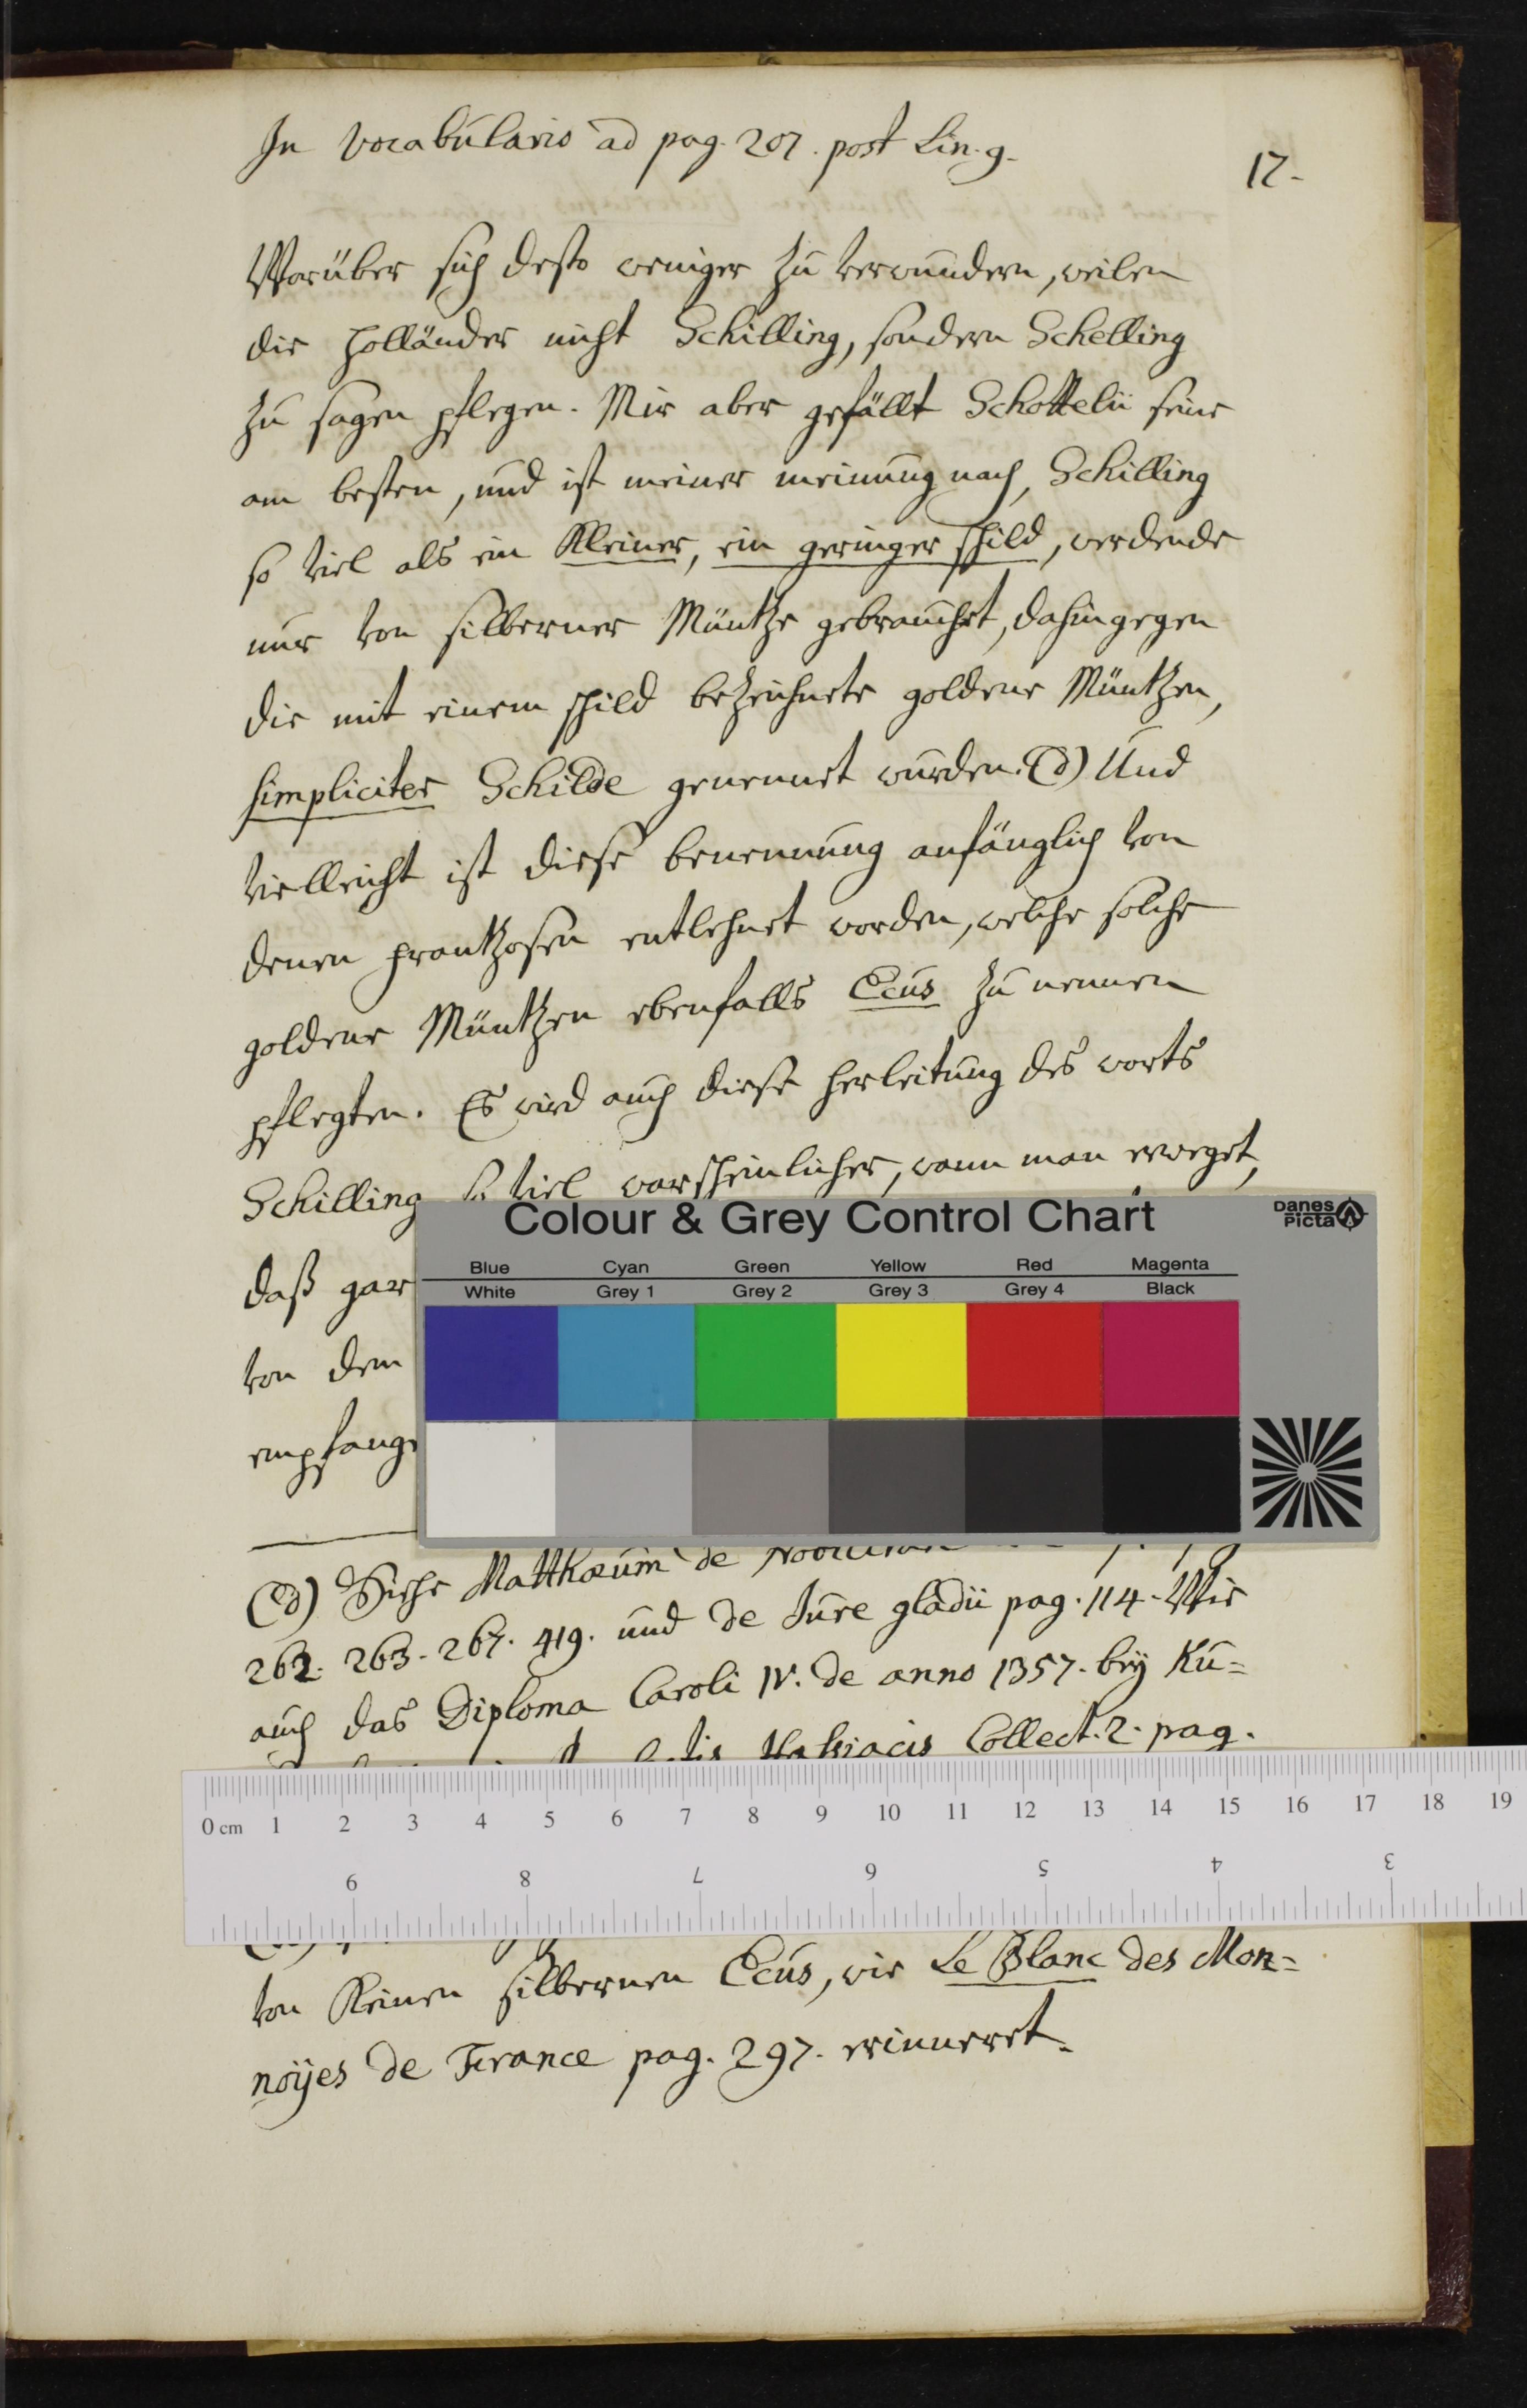 In Vocabulario ad pag. 207. post Lin. 9.
17.
Worüber sich desto weniger zu verwundern, weilen
die Holländer nicht Schilling, sondern Schelling
zu sagen pflegen. Mir aber gefällt Schottelii seine
am besten, und ist meiner meinung nach, Schilling
so viel als ein Kleiner, ein geringer schild, werdende
nur von silberner Müntze gebrauchet, dahingegen
die mit einem schild bezeichnete goldene Müntzen,
simpliciter Schilde genennet wurden. (d) Und
vielleicht ist diese benennung anfänglich von
denen Frantzosen entlehnet worden, welche solche
goldene Müntzen ebenfalls Ecus zu nennen
pflegten. Es wird auch diese herleitung des worts
Schilling so viel warscheinlicher, wann man erweget,
daß gar
von dem
empfang
Colour & Grey Control Chart
Danes Picta
Blue Cyan Green Yellow Red Magenta
White Grey 1 Grey 2 Grey 3 Grey 4 Black
(d) Siehe Matthæum de
262. 263. 267. 419. und de Jure gladii pag. 114. Wie
auch das Diploma Caroli IV. de anno 1357. bey Ku=
Collect. 2. pag.
0 cm 1 2 3 4 5 6 7 8 9 10 11 12 13 14 15 16 17 18 19
9 8 7 6 5 4 3
von Keinen silbernen Ecus, wie Le Blanc des Mon=
noÿes de France pag. 297. erinneret.